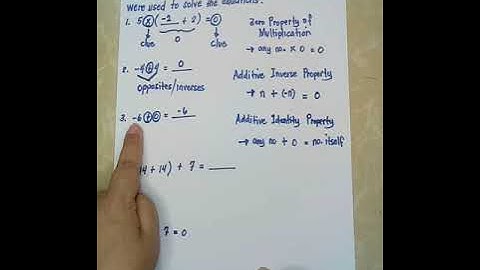 were used to solve the equations.
1. 5 × ( -2 + 2 ) = 0
clue 0 clue
Zero Property of
Multiplication
→ any no. × 0 = 0
2. -4 + 4 = 0
opposites/inverses
Additive Inverse Property
→ n + (-n) = 0
3. -6 + 0 = -6
Additive Identity Property
→ any no. + 0 = no. itself
14 + 14) + 7 = ____
7 = 0